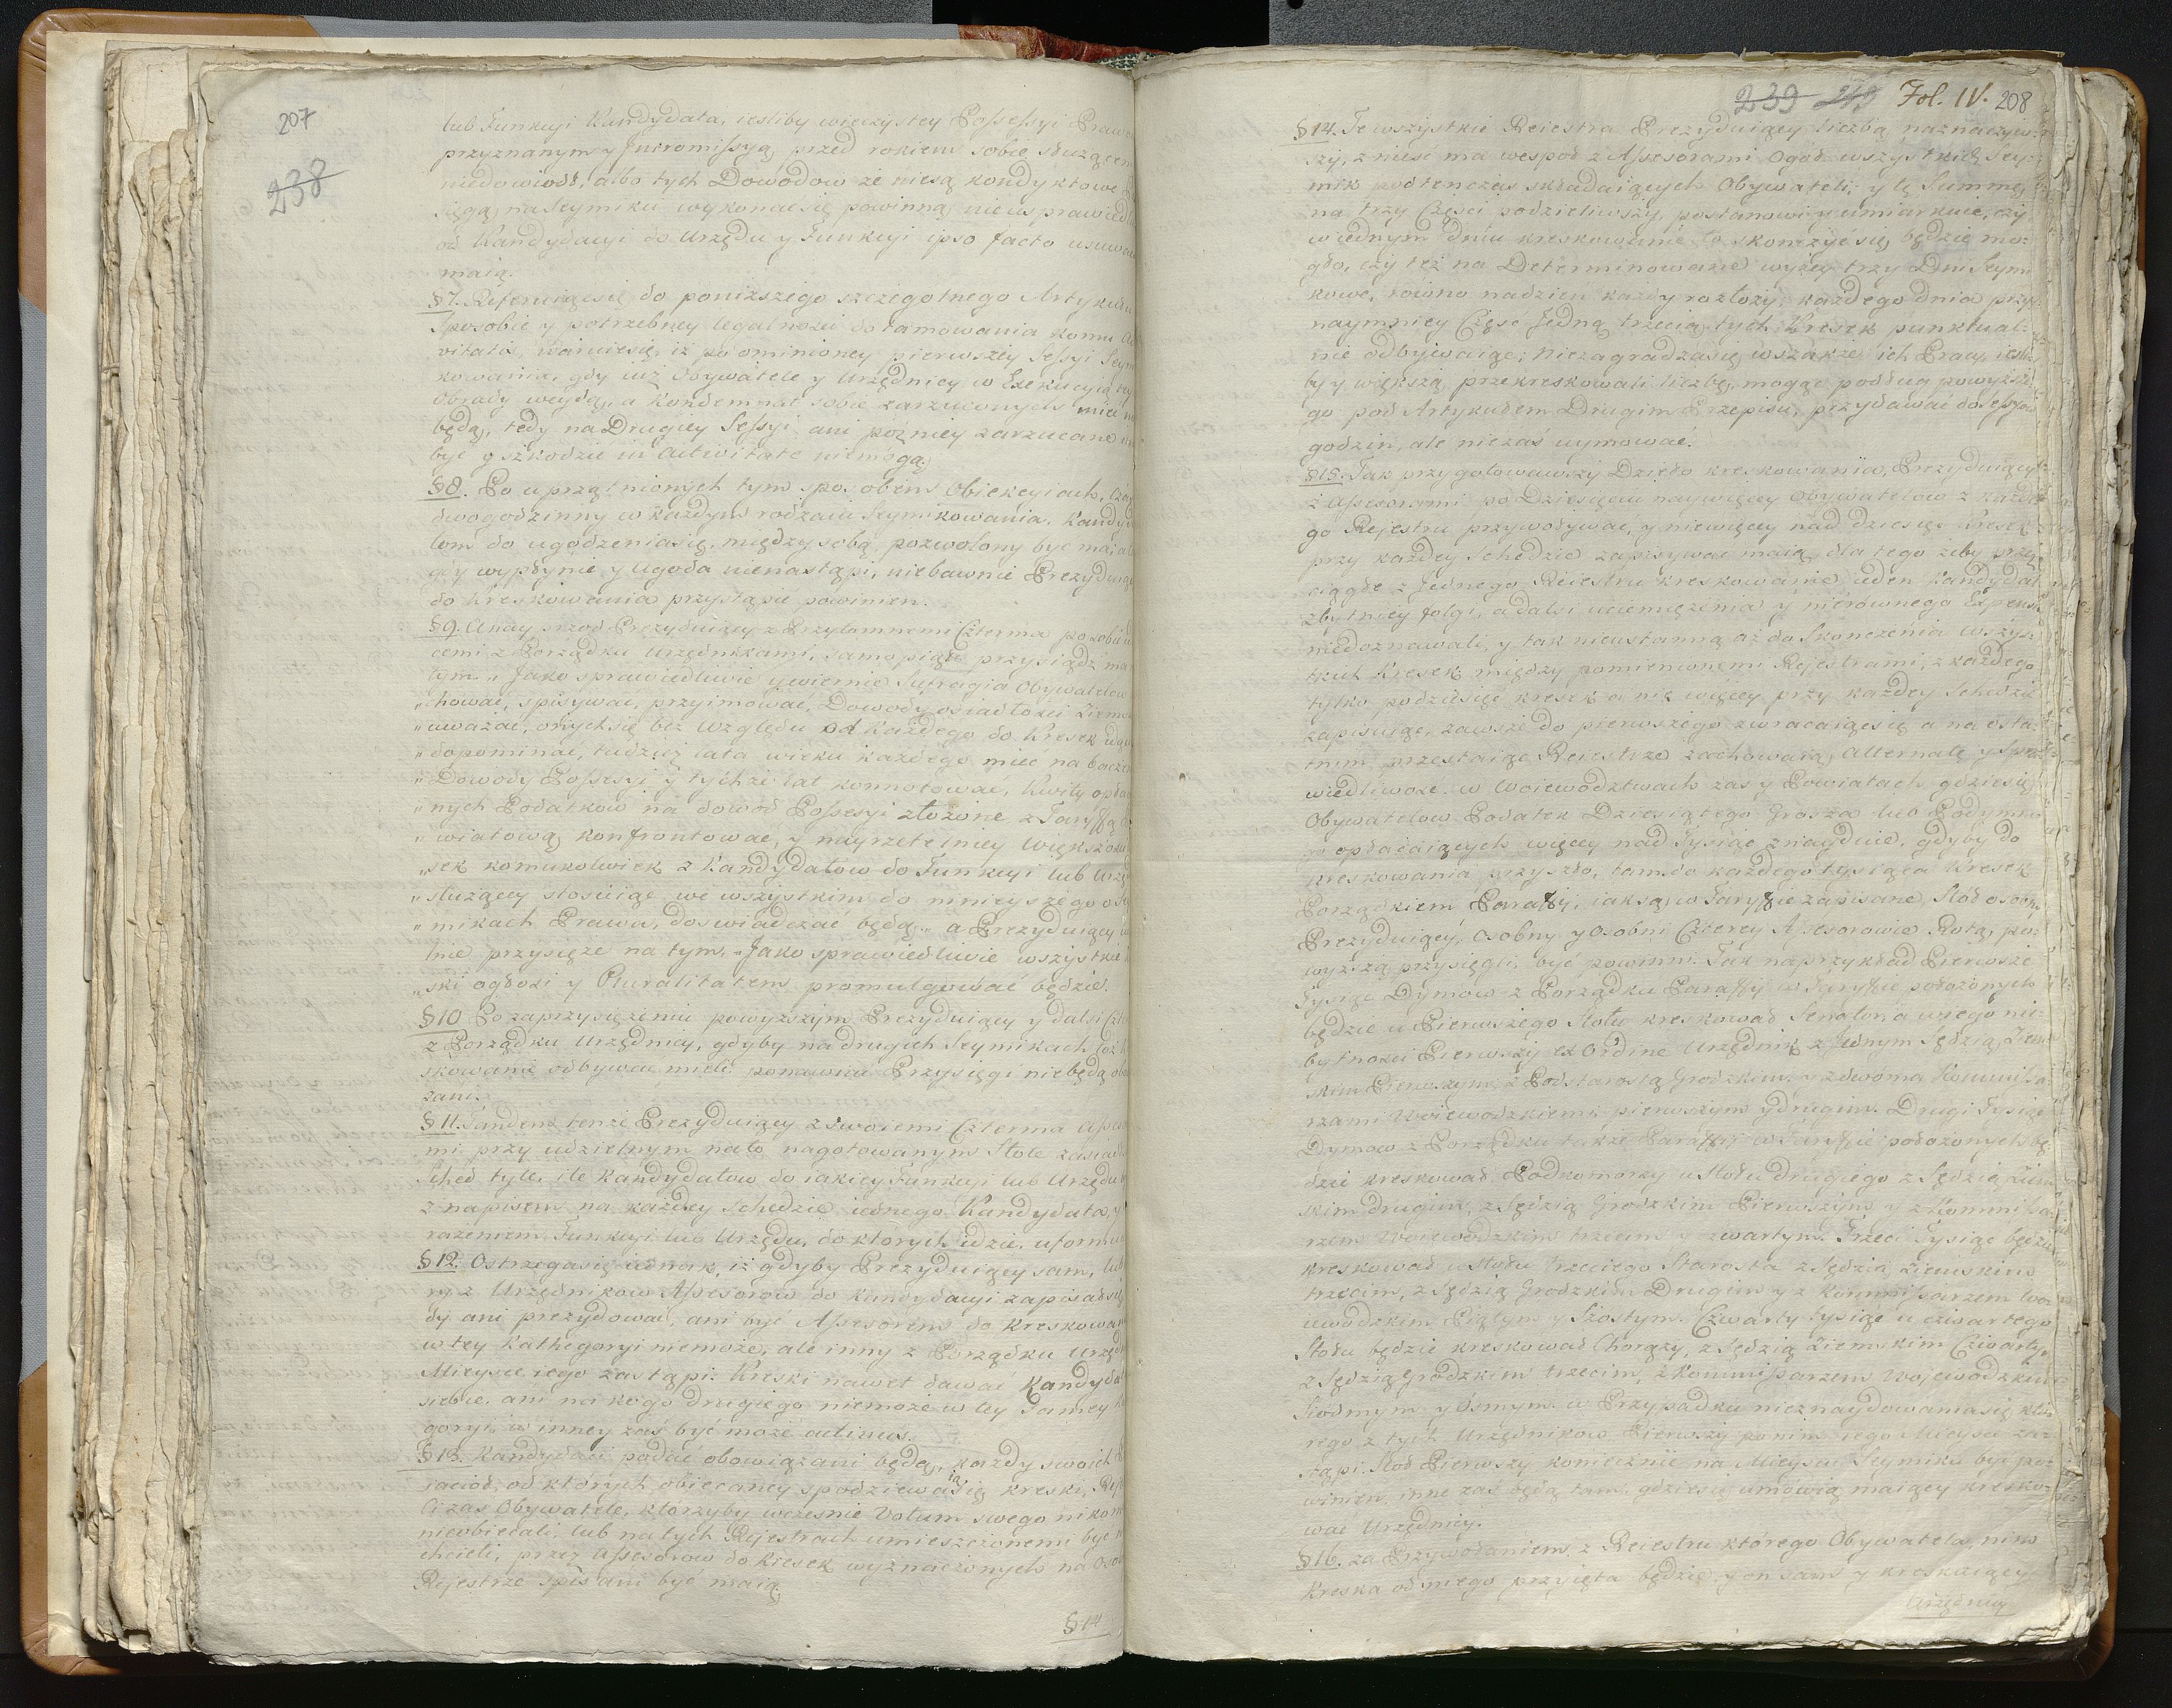 207
238
lub Funkcyi Kandydata, iesliby wieczystey Possessyi Prawem
przyznanym y Intromissyą, przed rokiem sobie służącem
niedowiodł, albo tych Dowodow że niesą kondyktowe
sięgą na Seymiku wykonać się powinną nieusprawiedli
od Kandydacyi do Urzędu y Funkcyi ipso facto usuwa
maią.
§ 7. Referuiąc się do poniższego szczegolnego Artykułu
Sposobie y potrzebney legalności do tamowania komu Ac
vitatis, waruie się, iż po ominioney pierwszey Sessyi Seym
kowania, gdy iuż Obywatele y Urzędnicy w Exekucyią tey
Obrady weydą, a Kondemnat sobie zarzuconych mieć nie
będą, tedy na Drugiey Sessyi ani pozniey zarzucane
być y szkodzić in Activitate niemogą.
§ 8. Po uprzątnionych tym sposobem Obiekcyiach, Czas
dwogodzinny w każdym rodzaiu Seymikowania. Kandyda
tom do ugodzenia się między sobą pozwolony być ma, a
gdy wypłynie y Ugoda nienastąpi, niebawnie Prezyduią
do kreskowania przystąpić powinien.
§ 9. A nay przod Prezyduiący z Przytomnemi Czterma po sobie
cemi z Porządku Urzędnikami, samopiąt przysiądz ma
tym. „Jako sprawiedliwie y wiernie Sufragia Obywatelow
„chować, spisywać, przyimować, Dowody osiadłości Ziems
„uważać, onych się bez Względu od Każdego do Kresek idą
„dopominać, tudzież lata wieku każdego mieć na bacze
„Dowody Possessyi y tychże lat konnotować, Kwity opła
„nych Podatkow na dowod Possessyi złożone z Taryffą
„wiatową konfrontować, y nayrzetelniey Większość
„sek komukolwiek z Kandydatow do Funkcyi lub Urzę
„służącey stosuiąc we wszystkim do ninieyszego o Se
„mikach Prawa, doswiadczać będą„ a Prezyduiący
lnie przysięże na tym. „Jako sprawiedliwie wszystkie
„ski ogłosi y Pluralitatem promulgować będzie.
§ 10 Po zaprzysiężeniu powyższym Prezyduiący y dalsi Czte
z Porządku Urzędnicy, gdyby na drugich Seymikach toż
skowanie odbywać mieli ponawiać Przysięgi niebędą obo
zani.
§ 11. Tandem tenże Prezyduiący z swoiemi Czterma Asses
mi przy udzielnym na to nagotowanym Stole zasiad
Sched tyle, ile Kandydatow do iakiey Funkcyi lub Urzędu
z napisem na każdey schedzie iednego Kandydata, y
rażeniem Funkcyi lub Urzędu, do ktorych idzie, uformu
§ 12. Ostrzega się iednak, iż gdyby Prezyduiący sam, lub
ry z Urzędnikow Assesorow do Kandydacyi zapisał się
dy ani prezydować, ani być Assesorem do Kreskowan
w tey Kathegoryi niemoże, ale inny z Porządku Urzęd
Mieysce iego zastąpi: Kreski nawet dawać Kandyda
siebie, ani na kogo drugiego niemoże w tey samey
goryi, w inney zaś być może activus.
§ 13. Kandydaci podać obowiązani będą, każdy swoich
iacioł, od ktorych obiecaney spodziewaią się kreski, Rej
Ci zas Obywatele, ktorzyby wcześnie Votum swego nikom
nieobiecali, lub na tych Rejestrach umieszczonemi być
chcieli, przez Assesorow do Kresek wyznaczonych na Oso
Rejestrze spisani być maią.
§ 14
239 Fol. IV. 208
§ 14. Te wszystkie Reiestra Prezyduiący liczbą naznaczyw-
szy, znieść ma wespoł z Assesorami Ogół wszystkich Sey-
mik podtenczas składaiących Obywateli, y tę Summę
na trzy Części podzieliwszy, postanowi y umiarkuie, czy
w iednym dniu kreskowanie to skończyć się będzie mo-
gło, czy też na Determinowane wyżey trzy Dni Seymi
kowe, rowno nadzień każdy rozłoży, każdego dnia przy
naymniey Część Jedną trzecią tych Kresek punktual-
nie odbywaiąc; Niezagradza się wszakże ich Pracy, iesli-
by y większą przekreskowali liczbę, mogąc podług powyższe-
go pod Artykułem Drugim Przepisu, przydawać do Sessyow
godzin, ale niezaś uymować.
§ 15. Tak przygotowawszy Dzieło kreskowania, Prezyduiący
z Assesorami po Dziesięciu naywięcey Obywatelow z każde-
go Rejestru przywoływać, y niewięcey nad dziesięć Kresek
przy każdey Schedzie zapisywać maią, dla tego żeby przez
ciągłe z Jednego Reiestru kreskowanie, ieden Kandydat
zbytniey folgi, a dalsi uciemiężenia y nierównego Expensu
niedoznawali, y tak nieustanną aż do Skończenia wszys-
tkich Kresek między pomienionemi Rejestrami, z każdego
tylko podziesięć kresek a nie więcey przy każdey Schedzie
zapisuiąc, zawsze do pierwszego zwracaiąc się a na osta-
tnim przestaiąc Reiestrze zachowaią Alternatę y Spra-
wiedliwość. w Woiewodztwach zas y Powiatach gdzie się
Obywatelow Podatek Dziesiątego Grosza lub Podymne
opłacaiących więcey nad Tysiąc znayduie, gdyby do
kreskowania przyszło, tam do każdego tysiąca Kresek
Porządkiem Parafij, iak są w Taryffie zapisane, Stoł osobn.
Prezyduiący, Osobny y Osobni Czterey Assesorowie Rotą po-
wyższą przysięgli, być powinni. Tak naprzykład Pierwsze
Tysiąc Dymow z Porządku Paraffij w Taryffie położonych
będzie u Pierwszego Stołu kreskował Senator, a wiego nie-
bytności Pierwszy ex Ordine Urzędnik z Jednym Sędzią Ziem-
skim Pierwszym, z Podstarostą Grodzkim y zdwoma Kommissa-
rzami Woiewodzkiemi pierwszym y drugim. Drugi Tysiąc
Dymow z Porządku także Paraffij w Taryffie położonych bę-
dzie kreskował Podkomorzy u Stołu drugiego z Sędzią Ziem-
skim drugim, z Sędzią Grodzkim Pierwszym y z Kommissa-
rzem Woiewodzkim trzecim y czwartym. Trzeci Tysiąc będzie
kreskował u Stołu trzeciego Starosta z Sędzią Ziemskim
trzecim, z Sędzią Grodzkim Drugim y z Kommissarzem Wo-
iewodzkim Piątym y Szostym. Czwarty tysiąc u czwartego
Stołu będzie kreskował Chorąży, z Sędzią Ziemskim Czwartym
z Sędzią Grodzkim trzecim, z Kommissarzem Wojewodzkim
Siodmym y Osmym. w Przypadku nieznaydowania się któ-
rego z tych Urzędnikow Pierwszy po nim iego Mieysce za-
stąpi. Stoł Pierwszy koniecznie na Mieyscu Seymiku być po-
winien, inne zaś będą tam, gdzie się umówią maiący kresko-
wać Urzędnicy.
§ 16. za Przywołaniem z Reiestru którego Obywatela, nim
Kreska od niego przyięta będzie y on sam y kreskuiący
Urzędnicy